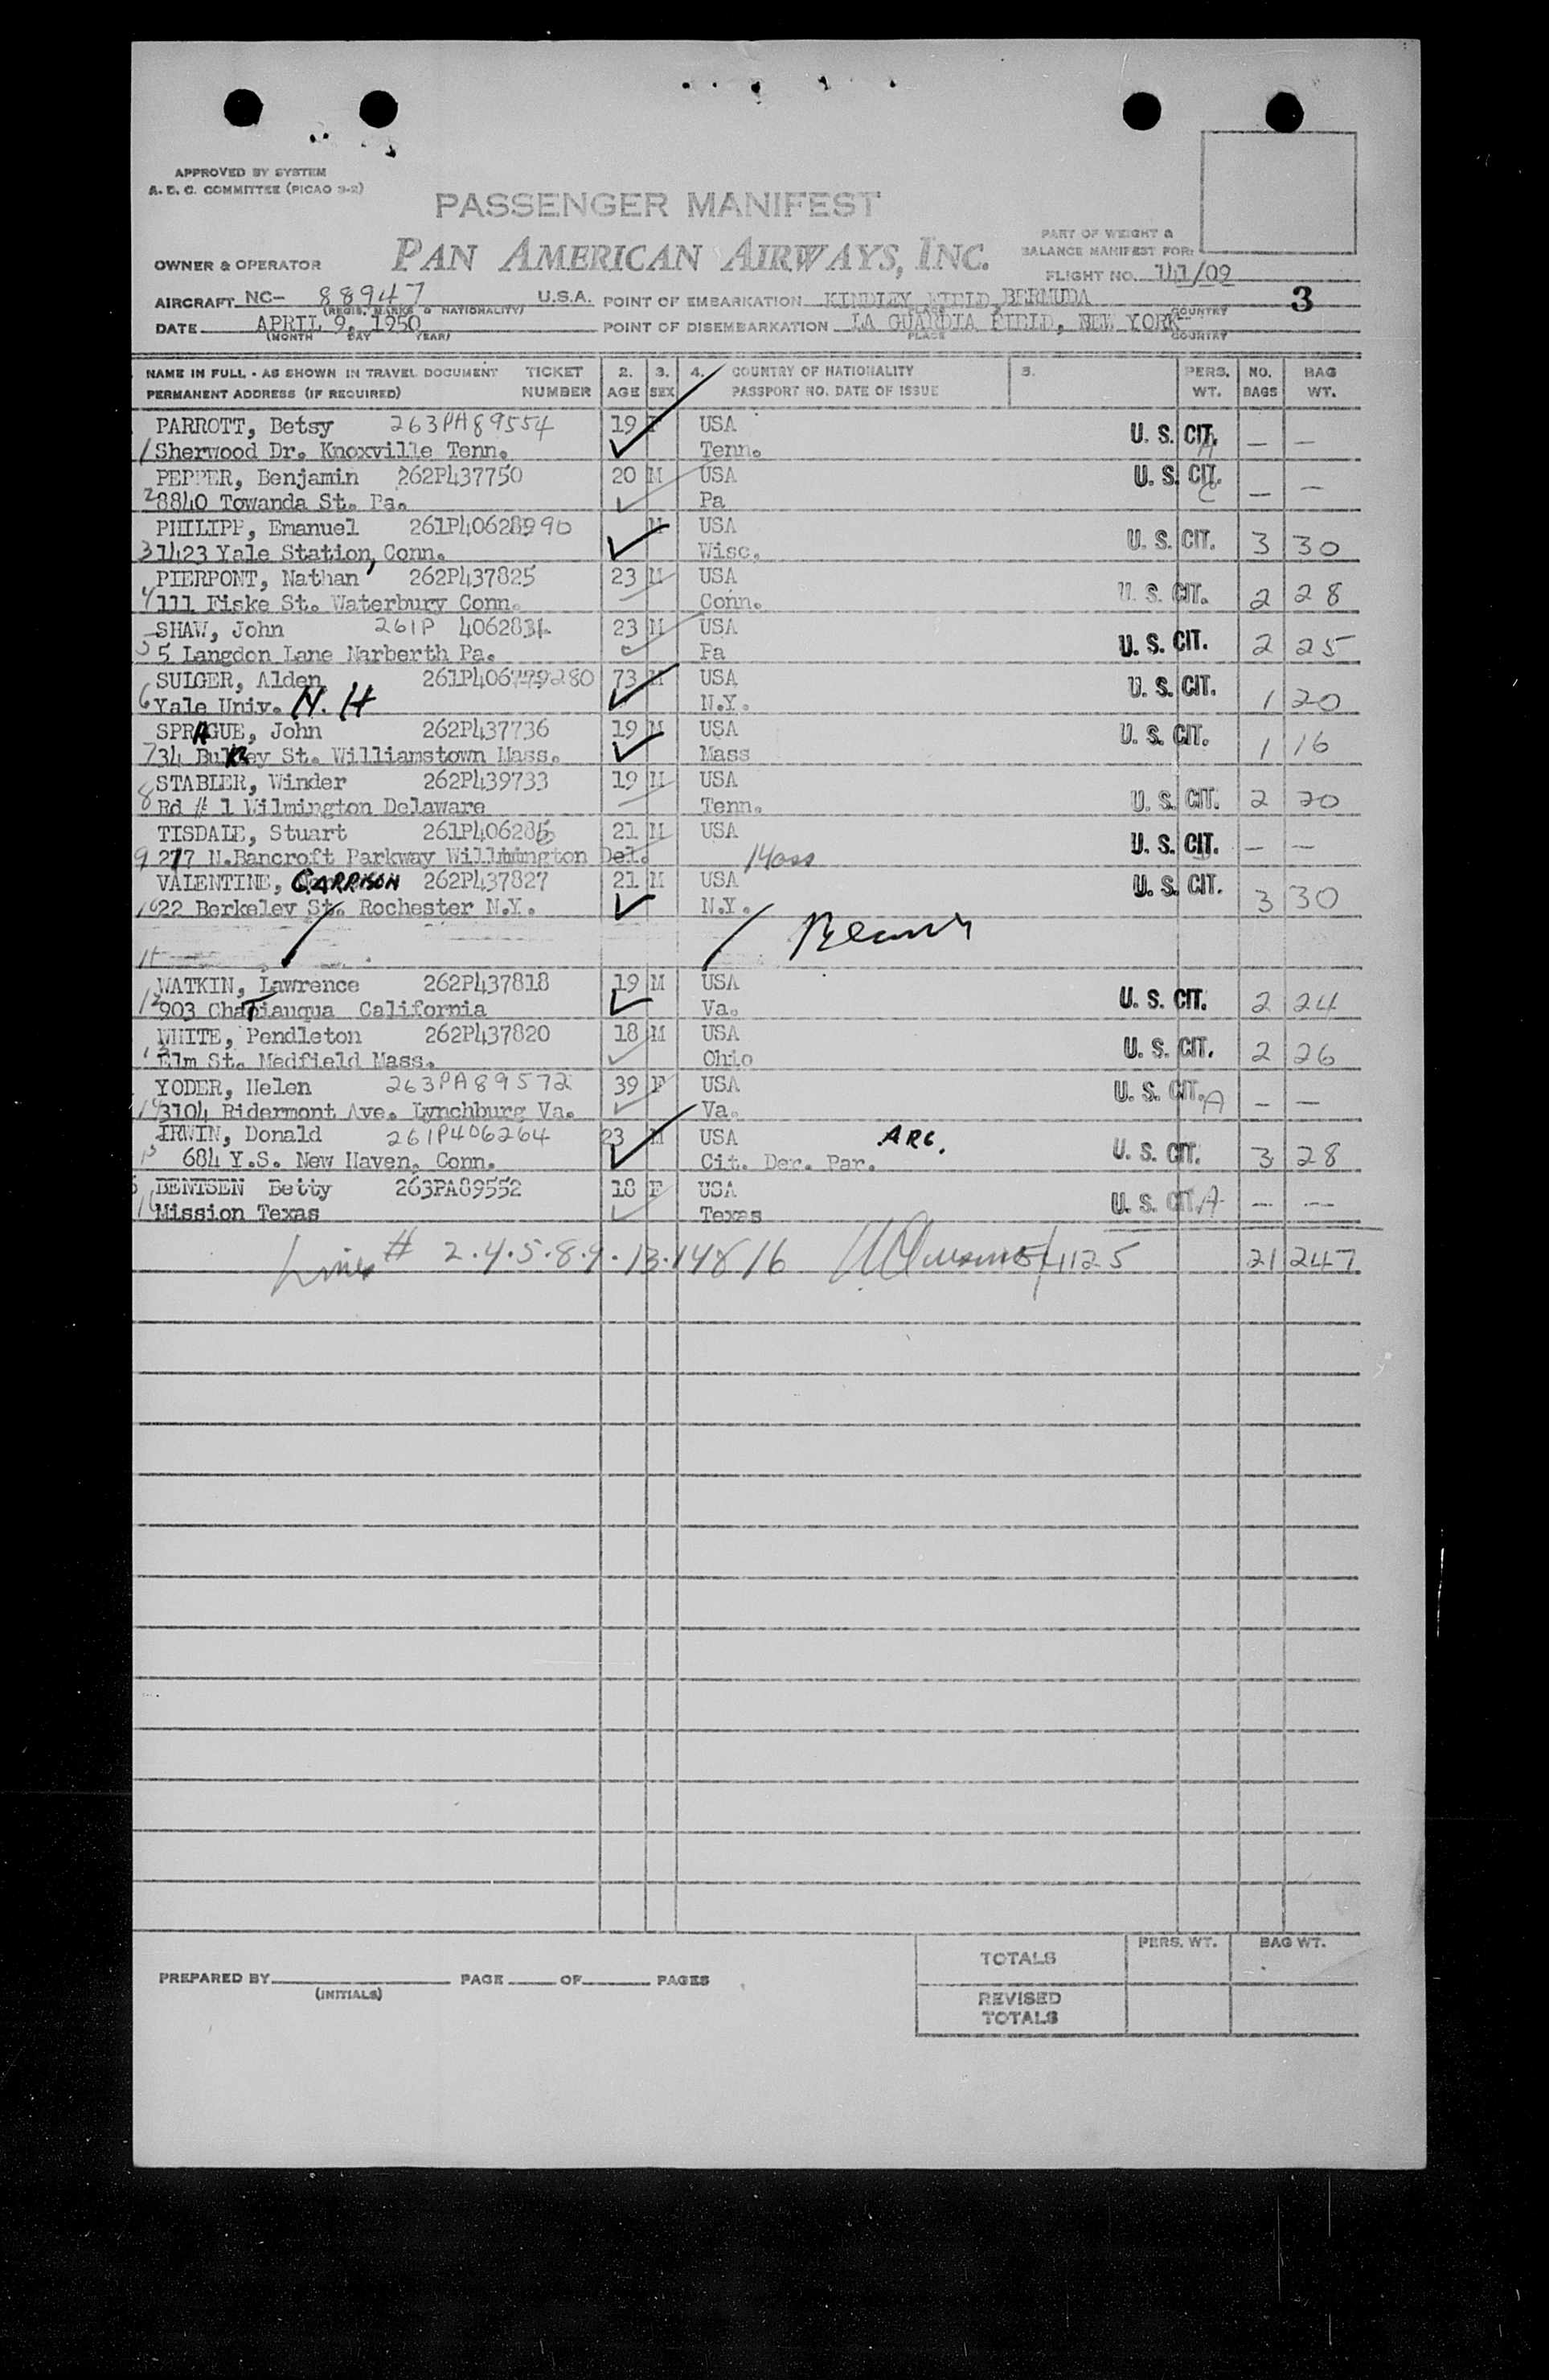 APPROVED BY SYSTEM
A. E. C. COMMITTEE (PICAO 9-2)
PASSENGER MANIFEST
PAN AMERICAN AIRWAYS, INC.
PART OF WEIGHT &
BALANCE MANIFEST FOR:
OWNER & OPERATOR
FLIGHT NO. 141/09
AIRCRAFT NC- 88947 U.S.A. POINT OF EMBARKATION KINDLEY FIELD, BERMUDA 3
(REGIS. MARKS & NATIONALITY) PLACE COUNTRY
DATE APRIL 9, 1950 POINT OF DISEMBARKATION LA GUARDIA FIELD, NEW YORK
(MONTH DAY YEAR) PLACE COUNTRY
NAME IN FULL - AS SHOWN IN TRAVEL DOCUMENT TICKET 2. 3. 4. COUNTRY OF NATIONALITY 5. PERS. NO. BAG
PERMANENT ADDRESS (IF REQUIRED) NUMBER AGE SEX PASSPORT NO. DATE OF ISSUE WT. BAGS WT.
PARROTT, Betsy 263PA89554 19 F USA U. S. CIT. — —
1 Sherwood Dr. Knoxville Tenn. Tenn. A
PEPPER, Benjamin 262P437750 20 M USA U. S. CIT.
2 8840 Towanda St. Pa. Pa C — —
PHILIPP, Emanuel 261P40628990 M USA
3 1423 Yale Station, Conn. Wisc. U. S. CIT. 3 30
PIERPONT, Nathan 262P437825 23 M USA
4 111 Fiske St. Waterbury Conn. Conn. U. S. CIT. 2 28
SHAW, John 261P 4062831 23 M USA
5 5 Langdon Lane Narberth Pa. Pa U. S. CIT. 2 25
SULGER, Alden 73 M USA
6 Yale Univ. N. H N.Y. U. S. CIT. 1 20
SPRAGUE, John 262P437736 19 M USA
7 34 Bulkey St. Williamstown Mass. Mass U. S. CIT. 1 16
STABLER, Winder 262P439733 19 M USA
8 Rd # 1 Wilmington Delaware Tenn. U. S. CIT. 2 20
TISDALE, Stuart 21 M USA
9 277 N.Bancroft Parkway Willmington Del. Mass U. S. CIT. — —
VALENTINE, GARRISON 262P437827 21 M USA U. S. CIT.
10 22 Berkeley St. Rochester N.Y. N.Y. 3 30
11
WATKIN, Lawrence 262P437818 19 M USA
12 903 Chatiauqua California Va. U. S. CIT. 2 24
WHITE, Pendleton 262P437820 18 M USA
13 Elm St. Medfield Mass. Ohio U. S. CIT. 2 26
YODER, Helen 263PA89572 39 F USA
14 3104 Ridermont Ave. Lynchburg Va. Va. U. S. CIT. A — —
IRWIN, Donald 261P406264 23 M USA ARC.
15 684 Y.S. New Haven, Conn. Cit. Der. Par. U. S. CIT. 3 28
BENTSEN Betty 263PA89552 18 F USA
16 Mission Texas Texas U. S. CIT. A — —
Lines # 2.4.5.8.9.13.14&16 21 247
PREPARED BY PAGE OF PAGES
(INITIALS)
TOTALS PERS. WT. BAG WT.
REVISED
TOTALS